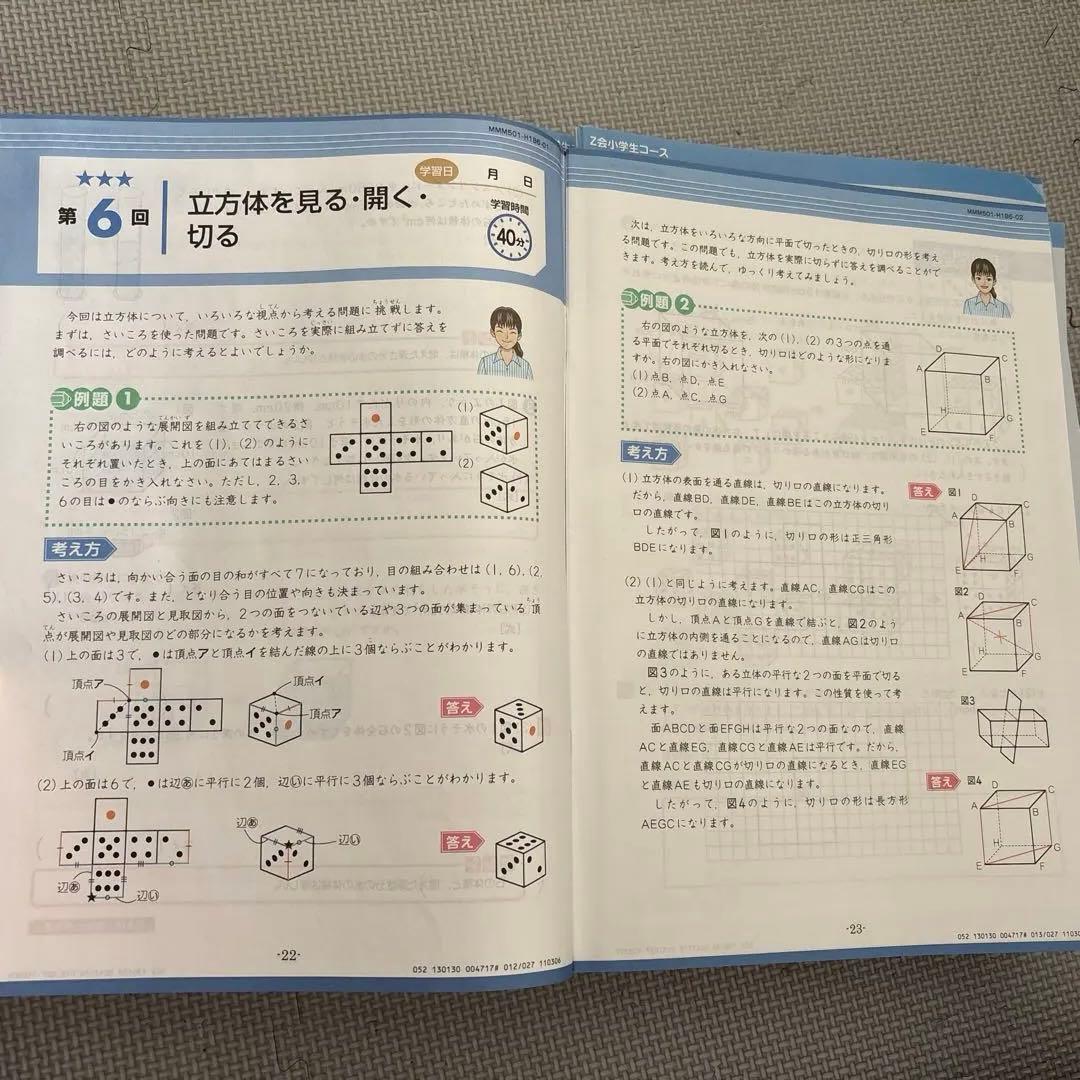 MMM501-H1B6-01
★★★
第6回
立方体を見る・開く・
切る
学習日 月 日
学習時間
40分
今回は立方体について，いろいろな視点から考える問題に挑戦します。
まずは，さいころを使った問題です。さいころを実際に組み立てずに答えを
調べるには，どのように考えるとよいでしょうか。
例題 1
右の図のような展開図を組み立ててできるさ
いころがあります。これを(1)，(2)のように
それぞれ置いたとき，上の面にあてはまるさい
ころの目をかき入れなさい。ただし，2，3，
6の目は●のならぶ向きにも注意します。
(1)
(2)
考え方
さいころは，向かい合う面の目の和がすべて7になっており，目の組み合わせは(1，6)，(2，
5)，(3，4)です。また，となり合う目の位置や向きも決まっています。
さいころの展開図と見取図から，2つの面をつないでいる辺や3つの面が集まっている頂
点が展開図や見取図のどの部分になるかを考えます。
(1)上の面は3で，●は頂点アと頂点イを結んだ線の上に3個ならぶことがわかります。
頂点ア
頂点イ
頂点イ
頂点ア
答え
(2)上の面は6で，●は辺あに平行に2個，辺いに平行に3個ならぶことがわかります。
辺あ
辺い
辺あ
辺い
答え
-22-
052 130130 004717# 012/027 110306
Z会小学生コース
MMM501-H1B6-02
次は，立方体をいろいろな方向に平面で切ったときの，切り口の形を考え
る問題です。この問題でも，立方体を実際に切らずに答えを調べることがで
きます。考え方を読んで，ゆっくり考えてみましょう。
例題 2
右の図のような立方体を，次の(1)，(2)の3つの点を通
る平面でそれぞれ切るとき，切り口はどのような形になりま
すか。右の図にかき入れなさい。
(1)点B，点D，点E
(2)点A，点C，点G
D
C
A
B
H
G
E
F
考え方
(1)立方体の表面を通る直線は，切り口の直線になります。
だから，直線BD，直線DE，直線BEはこの立方体の切り
口の直線です。
したがって，図1のように，切り口の形は正三角形
BDEになります。
答え
図1
D
C
A
B
H
G
E
F
(2)(1)と同じように考えます。直線AC，直線CGはこの
立方体の切り口の直線になります。
しかし，頂点Aと頂点Gを直線で結ぶと，図2のよう
に立方体の内側を通ることになるので，直線AGは切り口
の直線ではありません。
図3のように，ある立体の平行な2つの面を平面で切る
と，切り口の直線は平行になります。この性質を使って考
えます。
面ABCDと面EFGHは平行な2つの面なので，直線
ACと直線EG，直線CGと直線AEは平行です。だから，
直線ACと直線CGが切り口の直線になるとき，直線EG
と直線AEも切り口の直線になります。
したがって，図4のように，切り口の形は長方形
AEGCになります。
図2
D
C
A
B
H
G
E
F
図3
答え
図4
D
C
A
B
H
G
E
F
-23-
052 130130 004717# 013/027 11030